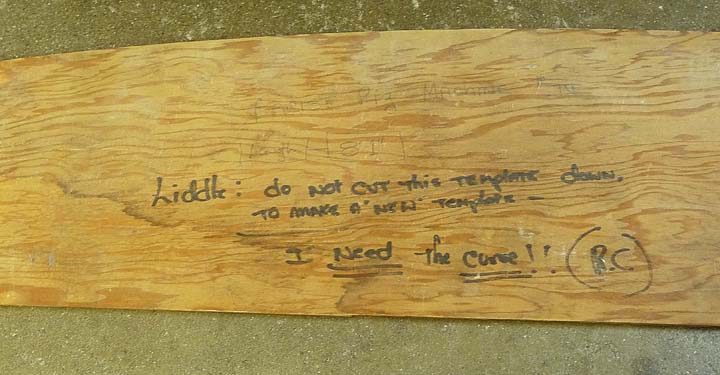 Liddle: do NOT CUT this Template down,
TO MAKE A "NEW" Template –
I Need the Curve!! (B.C)